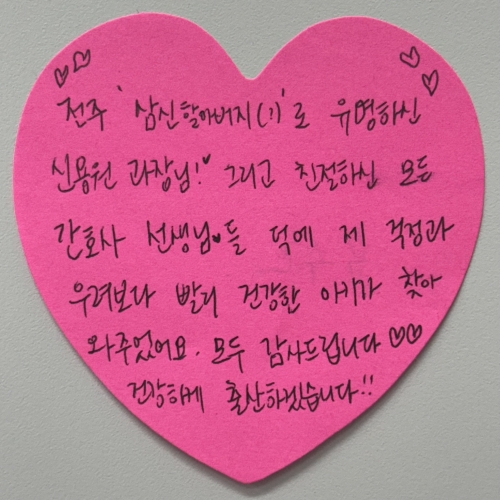 전주 '삼신할아버지(!)'로 유명하신
신용원 과장님!♥ 그리고 친절하신 모든
간호사 선생님♥들 덕에 제 걱정과
우려보다 빨리 건강한 아기가 찾아
와주었어요. 모두 감사드립니다 ♡♡
건강하게 출산하겠습니다!!